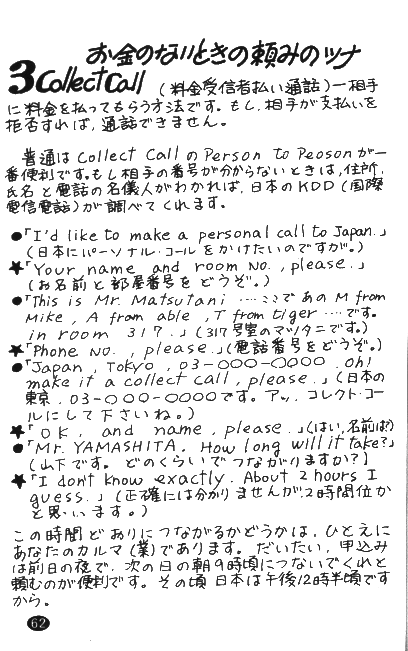 お金のないときの頼みのツナ
3 Collect Call (料金受信者払い通話)一相手
に料金を払ってもらう方法です。もし、相手が支払いを
拒否すれば、通話できません。
普通は Collect Call の Person to Peoson が一
番便利です。もし相手の番号が分からないときは、住所、
氏名と電話の名儀人がわかれば、日本のKDD(国際
電信電話)が調べてくれます。
●「I'd like to make a personal call to Japan.」
(日本にパーソナル・コールをかけたいのですが。)
★「Your name and room No., please.」
(お名前と部屋番号をどうぞ。)
●「This is Mr. Matsutani ‥‥ここであのM from
Mike, A from able, T from tiger ‥‥です。
in room 317.」(317号室のマツタニです。)
★「Phone No., please.」(電話番号をどうぞ。)
●「Japan, Tokyo, 03-○○○-○○○○. Oh!
make it a collect call, please.」(日本の
東京、03-○○○-○○○○です。アッ、コレクト・コー
ルにして下さいね。)
★「OK, and name, please.」(はい、名前は?)
●「Mr. YAMASHITA. How long will it take?」
(山下です。どのくらいでつながりますか?)
★「I don't know exactly. About 2 hours I
guess.」(正確には分かりませんが、2時間位か
と思います。)
この時間どおりにつながるかどうかは、ひとえに
あなたのカルマ(業)であります。だいたい、申込み
は前日の夜で、次の日の朝9時頃につないでくれと
頼むのが便利です。その頃日本は午後12時半頃です
から。
62